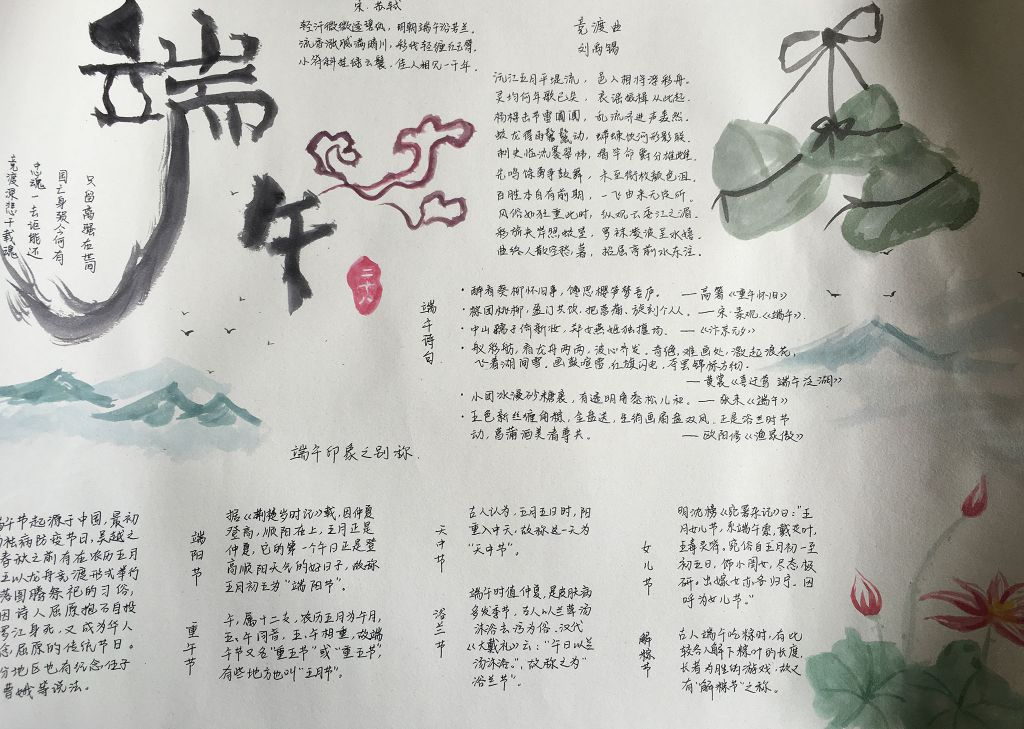 端午
二十八
宋·苏轼
轻汗微微透碧纨，明朝端午浴芳兰。
流香涨腻满晴川，彩线轻缠红玉臂，
小符斜挂绿云鬟，佳人相见一千年。
竞渡曲
刘禹锡
沅江五月平堤流，邑人相将浮彩舟。
灵均何年歌已矣，哀谣振楫从此起。
杨桴击节雷阗阗，乱流齐进声轰然。
蛟龙得雨鬐鬣动，螮蝀饮河形影联。
刺史临流褰翠帏，揭竿命爵分雄雌。
百胜本自有前期，一飞由来无定所。
风俗如狂重此时，纵观云委江之湄。
曲终人散空愁暮，招屈亭前水东注。
只留离骚在世间
国亡身殒今何有
忠魂一去讵能还
竞渡深悲千载魂
端午诗句
——高翥《重午怀旧》
·中山孺子倚新妆，郑女燕姬独擅场。——《汴京元夕》
飞看湖间雪，画鼓喧雷，红旗闪电，夺罢锦标方彻。
——黄裳《喜迁莺 端午泛湖》
·小团冰浸砂糖裹，有透明角黍松儿和。——张耒《端午》
·五色新丝缠角粽，金盘送，生绡画扇盘双凤。正是浴兰时节
动，菖蒲酒美清尊共。——欧阳修《渔家傲》
端午印象之别称
午节起源于中国，最初
祛病防疫节日，吴越之
春秋之前有在农历五月
五以龙舟竞渡形式举行
落图腾祭祀的习俗，
因诗人屈原抱石投
罗江身死，又成为华人
念屈原的传统节日。
分地区也有纪念伍子
曹娥等说法。
端阳节
据《荆楚岁时记》载，因仲夏
登高，顺阳在上，五月正是
仲夏，它的第一个午日正是登
高顺阳天气的好日子，故称
五月初五为“端阳节”。
重午节
午，属十二支，农历五月为午月，
五、午同音，五、午相重，故端
午节又名“重五节”或“重五节”，
有些地方也叫“五月节”。
天中节
古人认为，五月五日时，阳
重入中天，故称这一天为
“天中节”。
浴兰节
端午时值仲夏，是皮肤病
多发季节，古人以兰草汤
沐浴去污为俗，汉代
《大戴礼》云：“午日以兰
汤沐浴。”，故称之为“
浴兰节”。
女儿节
明沈榜《宛署杂记》曰：“五
月女儿节，系端午索，戴艾叶，
五毒灵符。宛俗自五月初一至
初五日，饰小闺女，尽态极
研。出嫁女亦各归宁。因
呼为女儿节。”
解粽节
古人端午吃粽时，有比
较各人解下粽叶的长度，
长者为胜的游戏，故又
有“解粽节”之称。